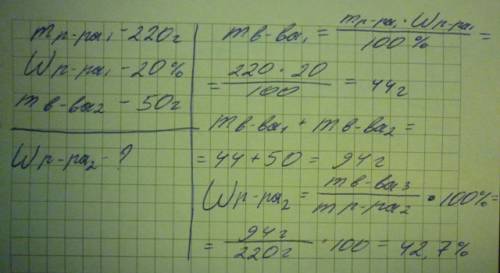 mр-ра₁ - 220г
Wр-ра₁ - 20%
mв-ва₂ - 50г
Wр-ра₂ - ?
mв-ва₁ = mр-ра₁ · Wр-ра₁ / 100% =
= 220 · 20 / 100 = 44г
mв-ва₁ + mв-ва₂ =
= 44 + 50 = 94г
Wр-ра₂ = mв-ва₃ / mр-ра₂ · 100% =
= 94г / 220г · 100 = 42,7%